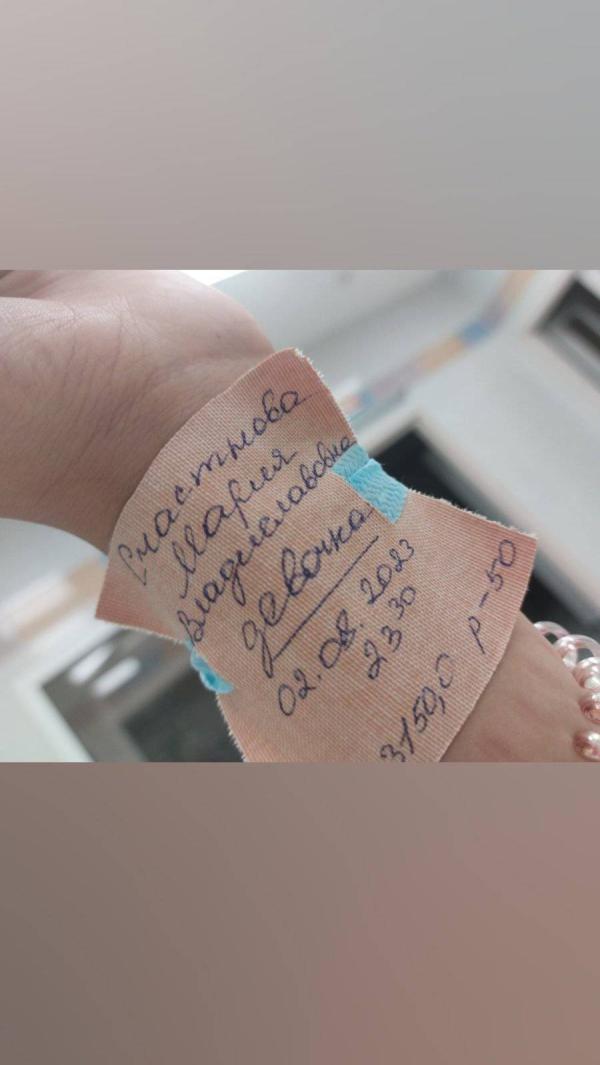 Счастнова
Мария
Владиславовна
девочка
02.08.2023
23 30
3150,0 р-50